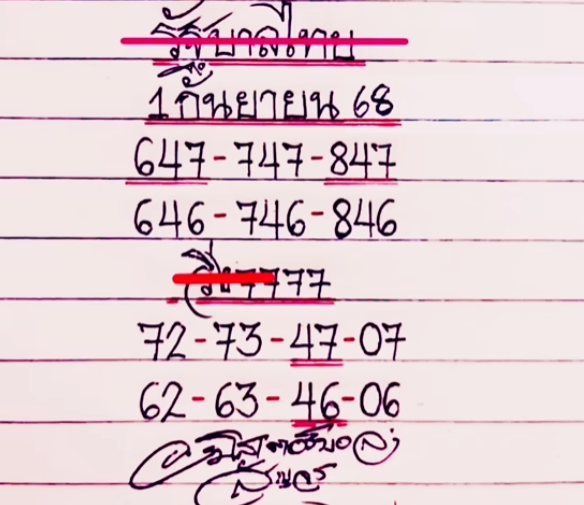 รัฐบาลไทย
1 กันยายน 68
647-747-847
646-746-846
7777
72-73-47-07
62-63-46-06